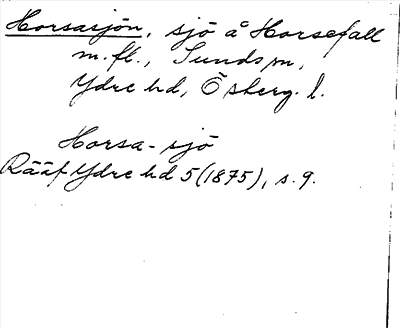 Horsasjön, sjö å Horsefall
m.fl., Sunds sn,
Ydre hd, Ösberg. l.
Horsa-sjö
Rääf Ydre hd 5 (1875), s. 9.